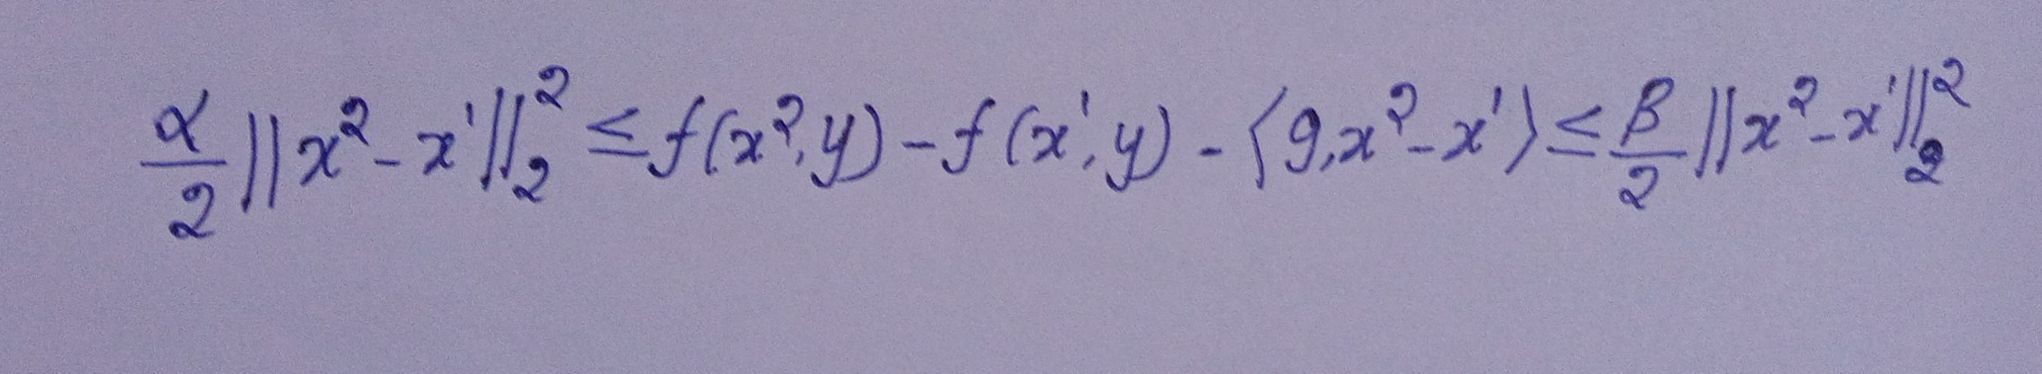 \frac{\alpha}{2} ||x^2 - x^1||_2^2 \leq f(x^2, y) - f(x^1, y) - \langle g, x^2 - x^1 \rangle \leq \frac{\beta}{2} ||x^2 - x^1||_2^2